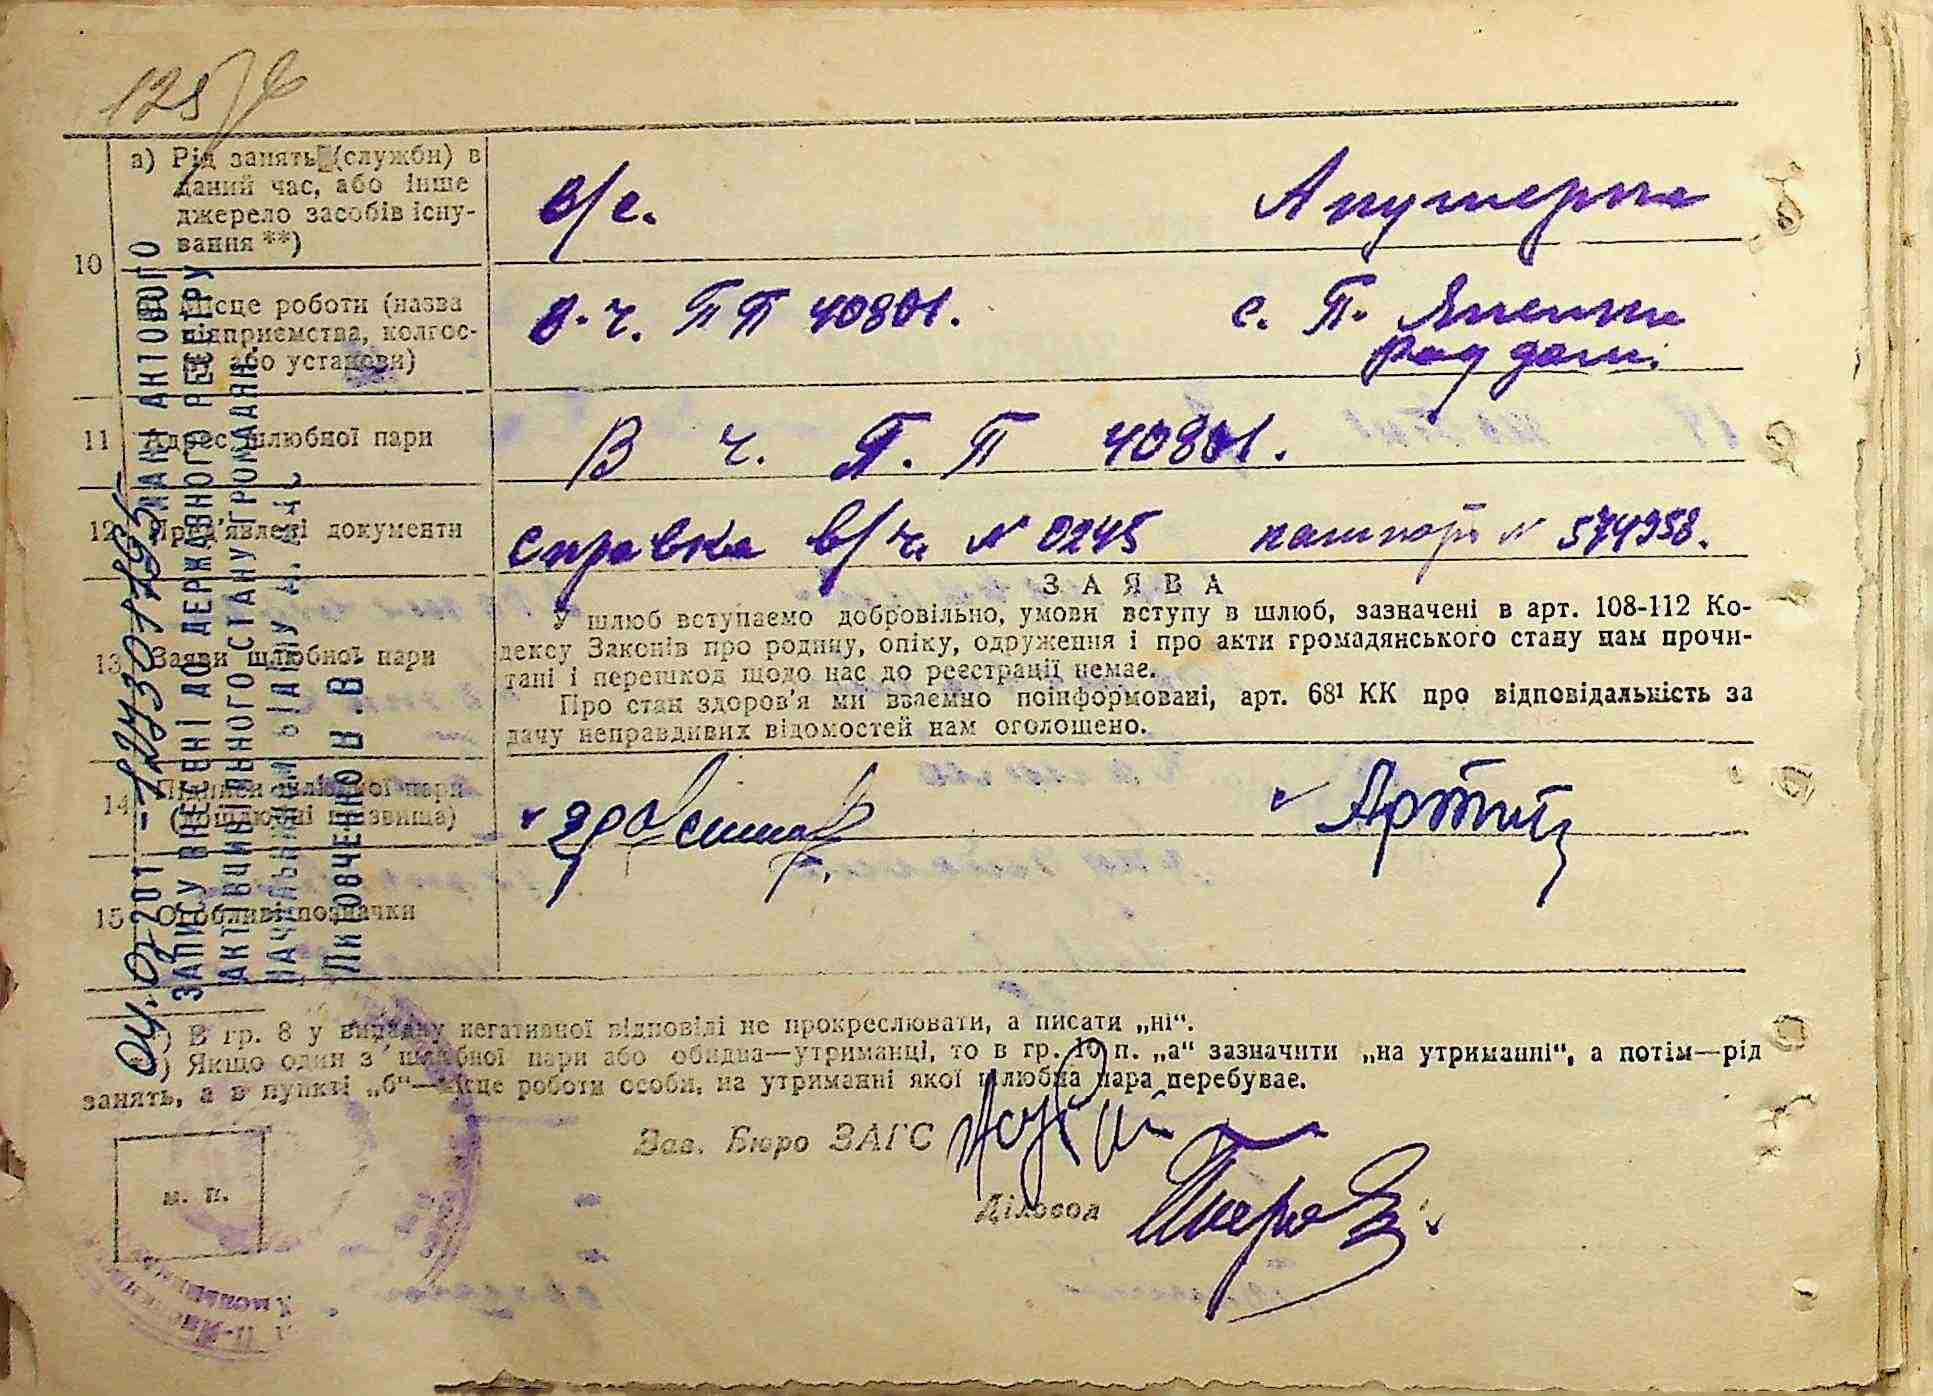 а) Рід занять (служби) в
даний час, або інше
джерело засобів існу-
вання **)
10
в/с.
Акушерка
Місце роботи (назва
підприємства, колгос-
або установи)
в.ч. ПП 40801.
с. П.
род дом.
11 Адрес шлюбної пари
В ч. П. П 40801.
12 Пред'явлені документи
справка в/ч. № 0245 пашпорт № 574958.
13 Заяви шлюбної пари
ЗАЯВА
У шлюб вступаємо добровільно, умови вступу в шлюб, зазначені в арт. 108-112 Ко-
дексу Законів про родину, опіку, одруження і про акти громадянського стану нам прочи-
тані і перешкод щодо нас до реєстрації немає.
Про стан здоров'я ми взаємно поінформовані, арт. 68¹ КК про відповідальність за
дачу неправдивих відомостей нам оголошено.
14 Підписи шлюбної пари
(дошлюбні прізвища)
15 Особливі позначки
*) В гр. 8 у випадку негативної відповіді не прокреслювати, а писати „ні“.
**) Якщо один з шлюбної пари або обидва—утриманці, то в гр. 10 п. „а“ зазначити „на утриманні“, а потім—рід
занять, а в пункті „б“—місце роботи особи, на утриманні якої шлюбна пара перебуває.
Зав. Бюро ЗАГС
Діловод
м. п.
ЗАПИСУ ВНЕСЕНІ ДО ДЕРЖАВНОГО РЕЄСТРУ
АКТІВ ЦИВІЛЬНОГО СТАНУ ГРОМАДЯН.
НАЧАЛЬНИКОМ ВІДДІЛУ
Литовченко В.